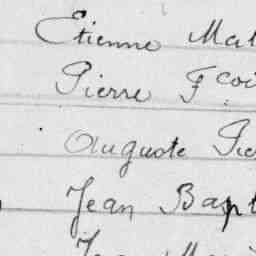 Etienne Mat
Pierre Fcoi
Auguste Pie
Jean Bapt